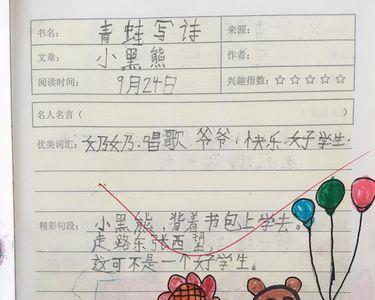 书名: 青蛙写诗 来源:
文章: 小黑熊 作者:
阅读时间: 9月24日 兴趣指数: ☆☆☆☆☆
名人名言 ( )
优美词汇: 奶奶. 唱歌. 爷爷, 快乐. 好学生.
精彩句段: 小黑熊, 背着书包上学去。
走路东张西望,
这可不是一个好学生。